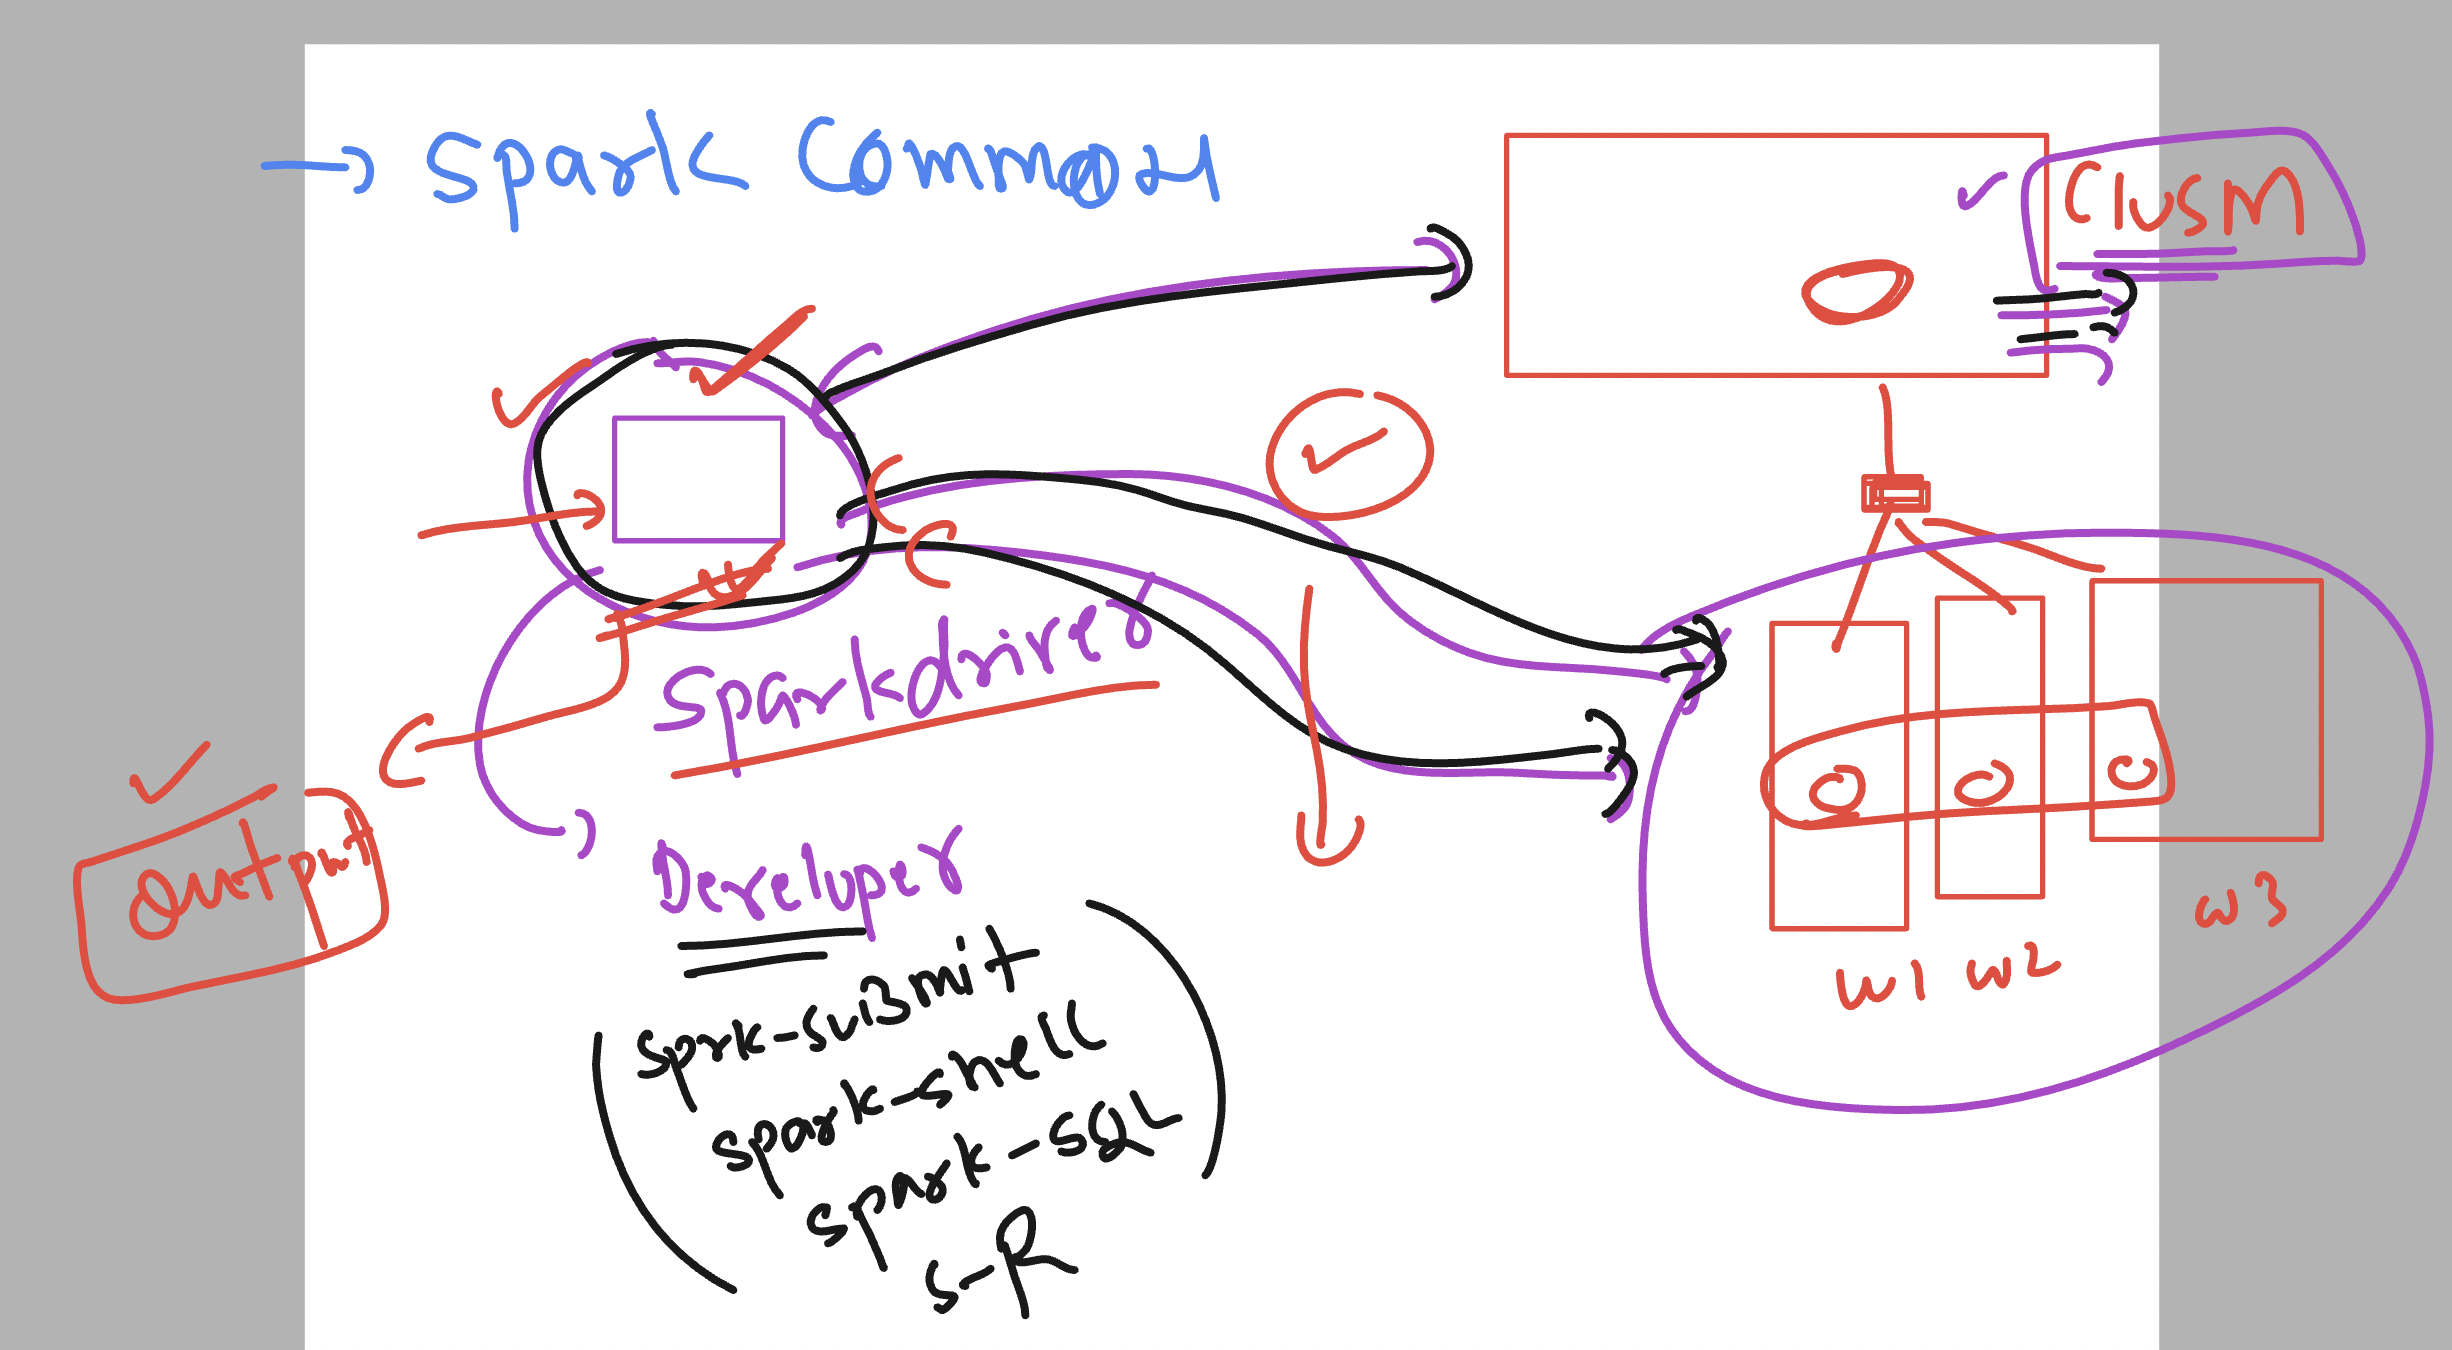 → Spark Common
ClusM
Sparkdriver
Output
Developer
Sprk-submit
spark-shell
spark-SQL
S-R
W1 W2
W3